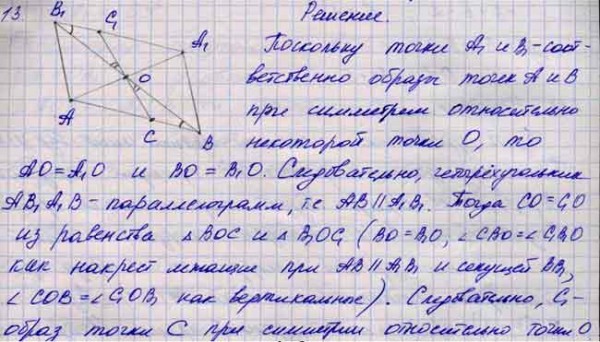 13.
B₁ C₁ A₁ O A C B
Решение.
Поскольку точки A₁ и B₁ - соот-
ветственно образы точек A и B
при симметрии относительно
некоторой точки O, то
AO=A₁O и BO=B₁O. Следовательно, четырёхугольник
AB₁A₁B - параллелограмм, т.е. AB∥A₁B₁. Тогда CO=C₁O
из равенства △BOC и △B₁OC₁ (BO=B₁O, ∠CBO=∠C₁B₁O
как накрест лежащие при AB∥A₁B₁ и секущей BB₁,
∠COB=∠C₁OB₁ как вертикальные). Следовательно, C₁-
образ точки C при симметрии относительно точки O